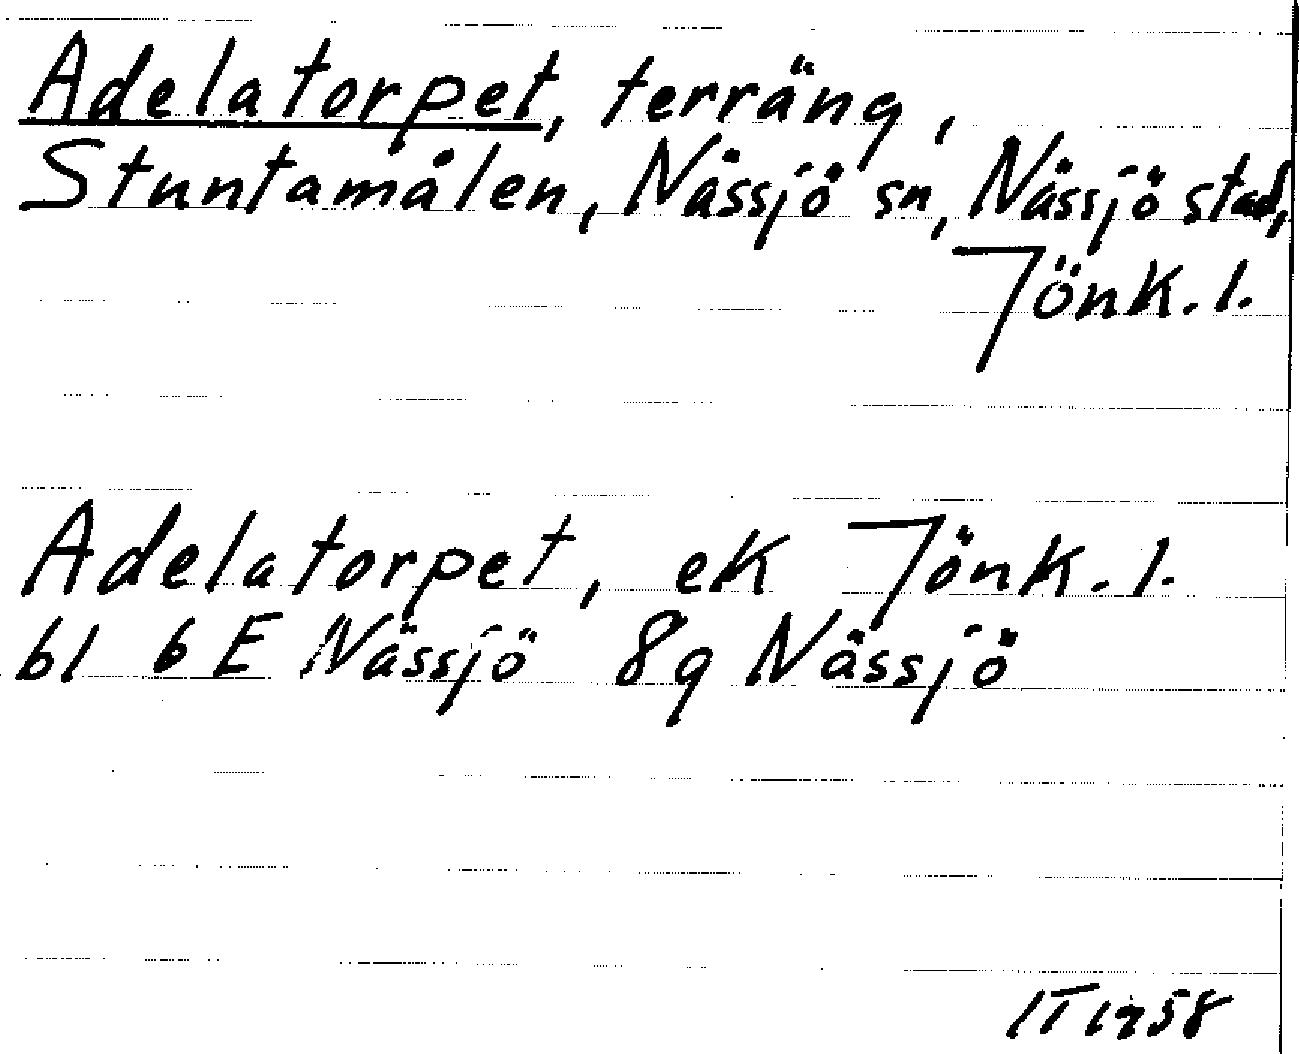 Adelatorpet, terräng,
Stuntamålen, Nässjö sn, Nässjö stad,
Jönk. l.
Adelatorpet, ek Jönk. l.
bl 6 E Nässjö 8g Nässjö
IT 1958